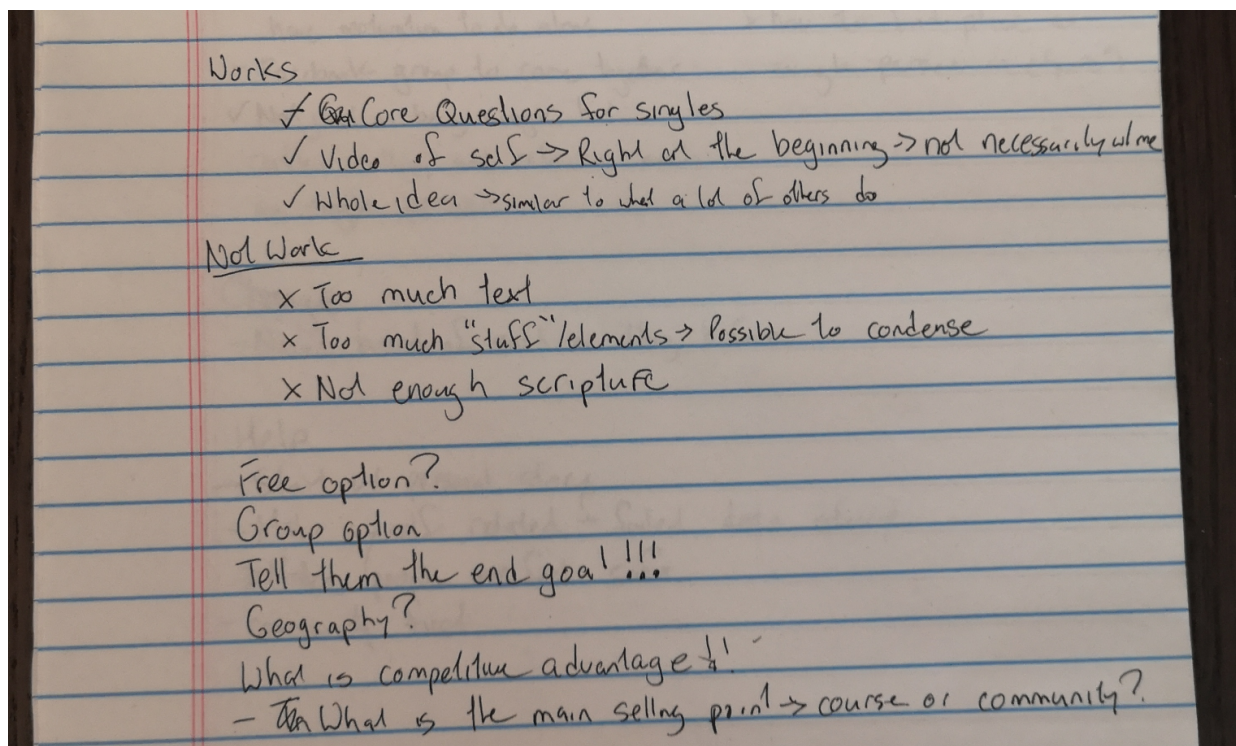 Works
✓ Core Questions for singles
✓ Video of self → Right at the beginning → not necessarily w/ me
✓ Whole idea → similar to what a lot of others do
Not Work
x Too much text
x Too much "stuff"/elements → Possible to condense
x Not enough scripture
Free option?
Group option
Tell them the end goal!!!
Geography?
What is competitive advantage!!
- What is the main selling point → course or community?